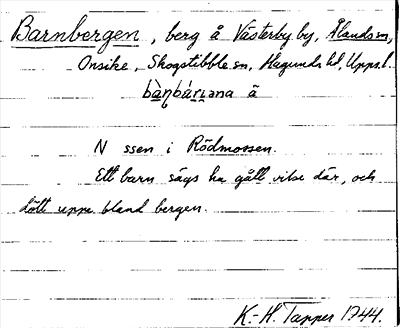 Barnbergen, berg å Västerby by, Ålands sn,
Onsike, Skogstibble sn, Hagunda hd, Upps. l.
N ssen i Rödmossen.
Ett barn sägs ha gått vilse där, och
dött uppe bland bergen.
K.-H. Tapper 1944.